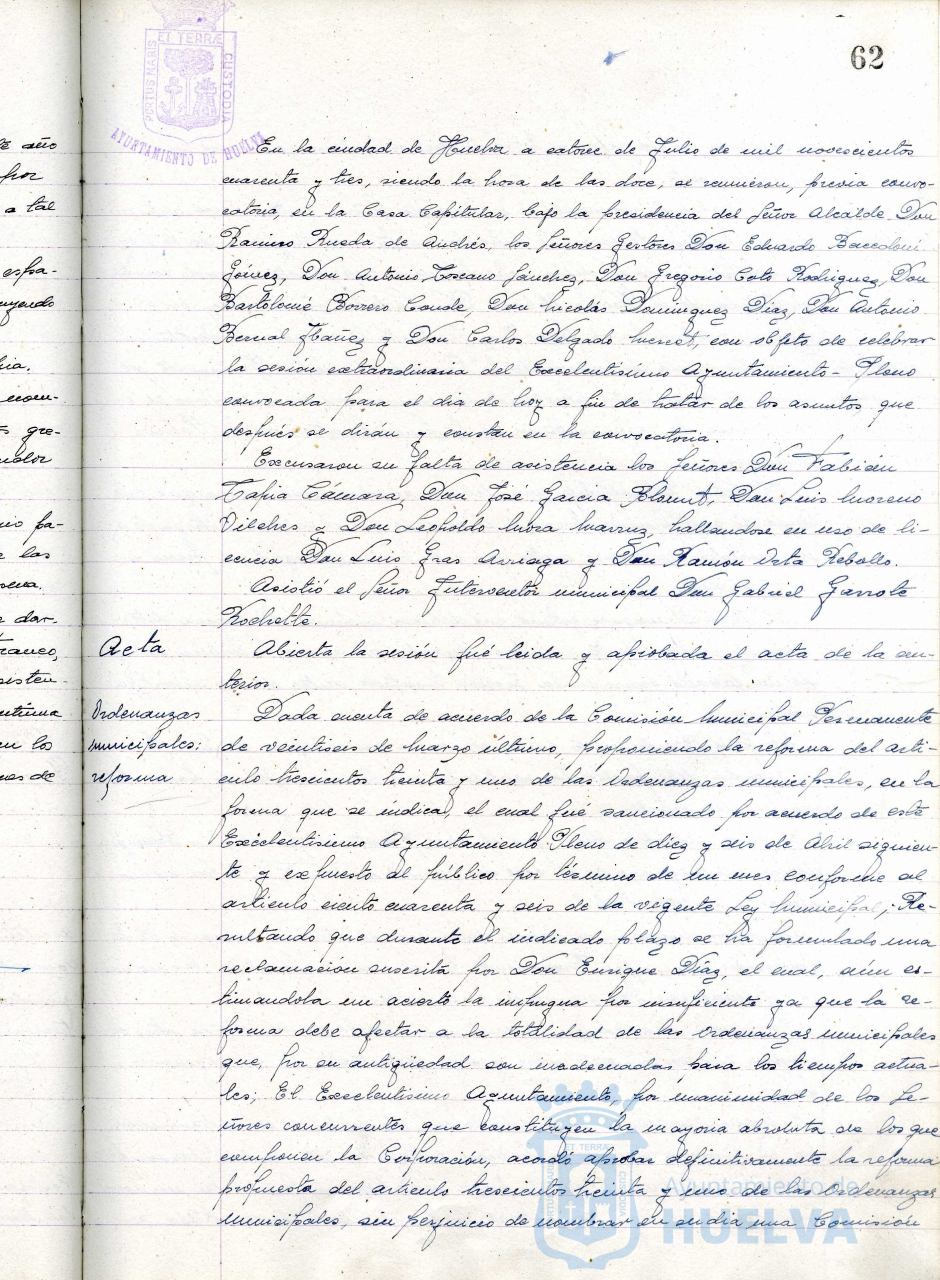 62
ET TERRÆ
PORTUS MARIS
CUSTODIA
AYUNTAMIENTO DE HUELVA
En la ciudad de Huelva a catorce de Julio de mil novescientos
cuarenta y tres, siendo la hora de las doce, se reunieron, previa convo-
catoria, en la Casa Capitular, bajo la presidencia del Señor Alcalde Don
Ramiro Rueda de Andrés, los Señores Gestores Don Eduardo
Gómez, Don Antonio Toscano Sánchez, Don Gregorio Coto Rodriguez, Don
Bartolomé Borrero Conde, Don Nicolás Dominguez Díaz, Don Antonio
Bernal Ibañez y Don Carlos Delgado, con objeto de celebrar
la sesión extraordinaria del Excelentisimo Ayuntamiento-Pleno
convocada para el dia de hoy a fin de tratar de los asuntos que
después se dirán y constan en la convocatoria.
Excusaron su falta de asistencia los Señores Don Fabián
Tapia Cámara, Don José Garcia, Don Luis Moreno
Vilches y Don Leopoldo Mora, hallandose en uso de li-
cencia Don Luis Gras Arriaga y Don Ramón Orta Rebollo.
Asistió el Señor Interventor municipal Don Gabriel Garrote
Rochette.
Acta
Abierta la sesión fué leida y aprobada el acta de la an-
terior.
Ordenanzas
municipales:
reforma
Dada cuenta de acuerdo de la Comisión Municipal Permanente
de veintiseis de Marzo último, proponiendo la reforma del arti-
culo trescientos treinta y uno de las Ordenanzas municipales, en la
forma que se indica, el cual fué sancionado por acuerdo de este
Excelentisimo Ayuntamiento Pleno de diez y seis de Abril siguien-
te y expuesto al público por término de un mes conforme al
articulo ciento cuarenta y seis de la vigente Ley Municipal; Re-
sultando que durante el indicado plazo se ha formulado una
reclamación suscrita por Don Enrique Díaz, el cual, aún es-
timandola un acierto la impugna por insuficiente ya que la re-
forma debe afectar a la totalidad de las Ordenanzas municipales
que, por su antigüedad son inadecuadas para los tiempos actua-
les; El Excelentisimo Ayuntamiento, por unanimidad de los Se-
ñores concurrentes que constituyen la mayoria absoluta de los que
componen la Corporación, acordó aprobar definitivamente la reforma
propuesta del articulo trescientos treinta y uno de las Ordenanzas
municipales, sin perjuicio de nombrar en su dia una Comisión
Ayuntamiento de
HUELVA